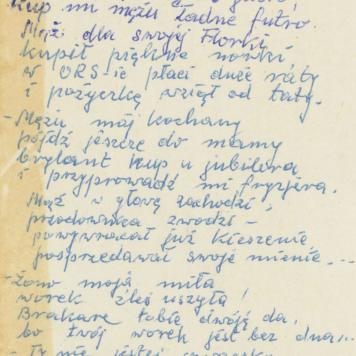 Kup mi mężu ładne futro.
Mąż dla swojej Florki
kupił piękne norki,
w ORS-ie płaci duże raty
i pożyczkę wziął od taty.
- Mężu mój kochany
pójdź jeszcze do mamy
brylant kup u jubilera
i przyprowadź mi fryzjera.
Mąż w głowę zachodzi,
przodownika zwodzi -
powywracał już kieszenie
posprzedawał swoje mienie...
- Żono moja miła
worek źleś uszyła!
Brakarz tobie dwóję da,
bo twój worek jest bez dna...
- Ty nie jesteś